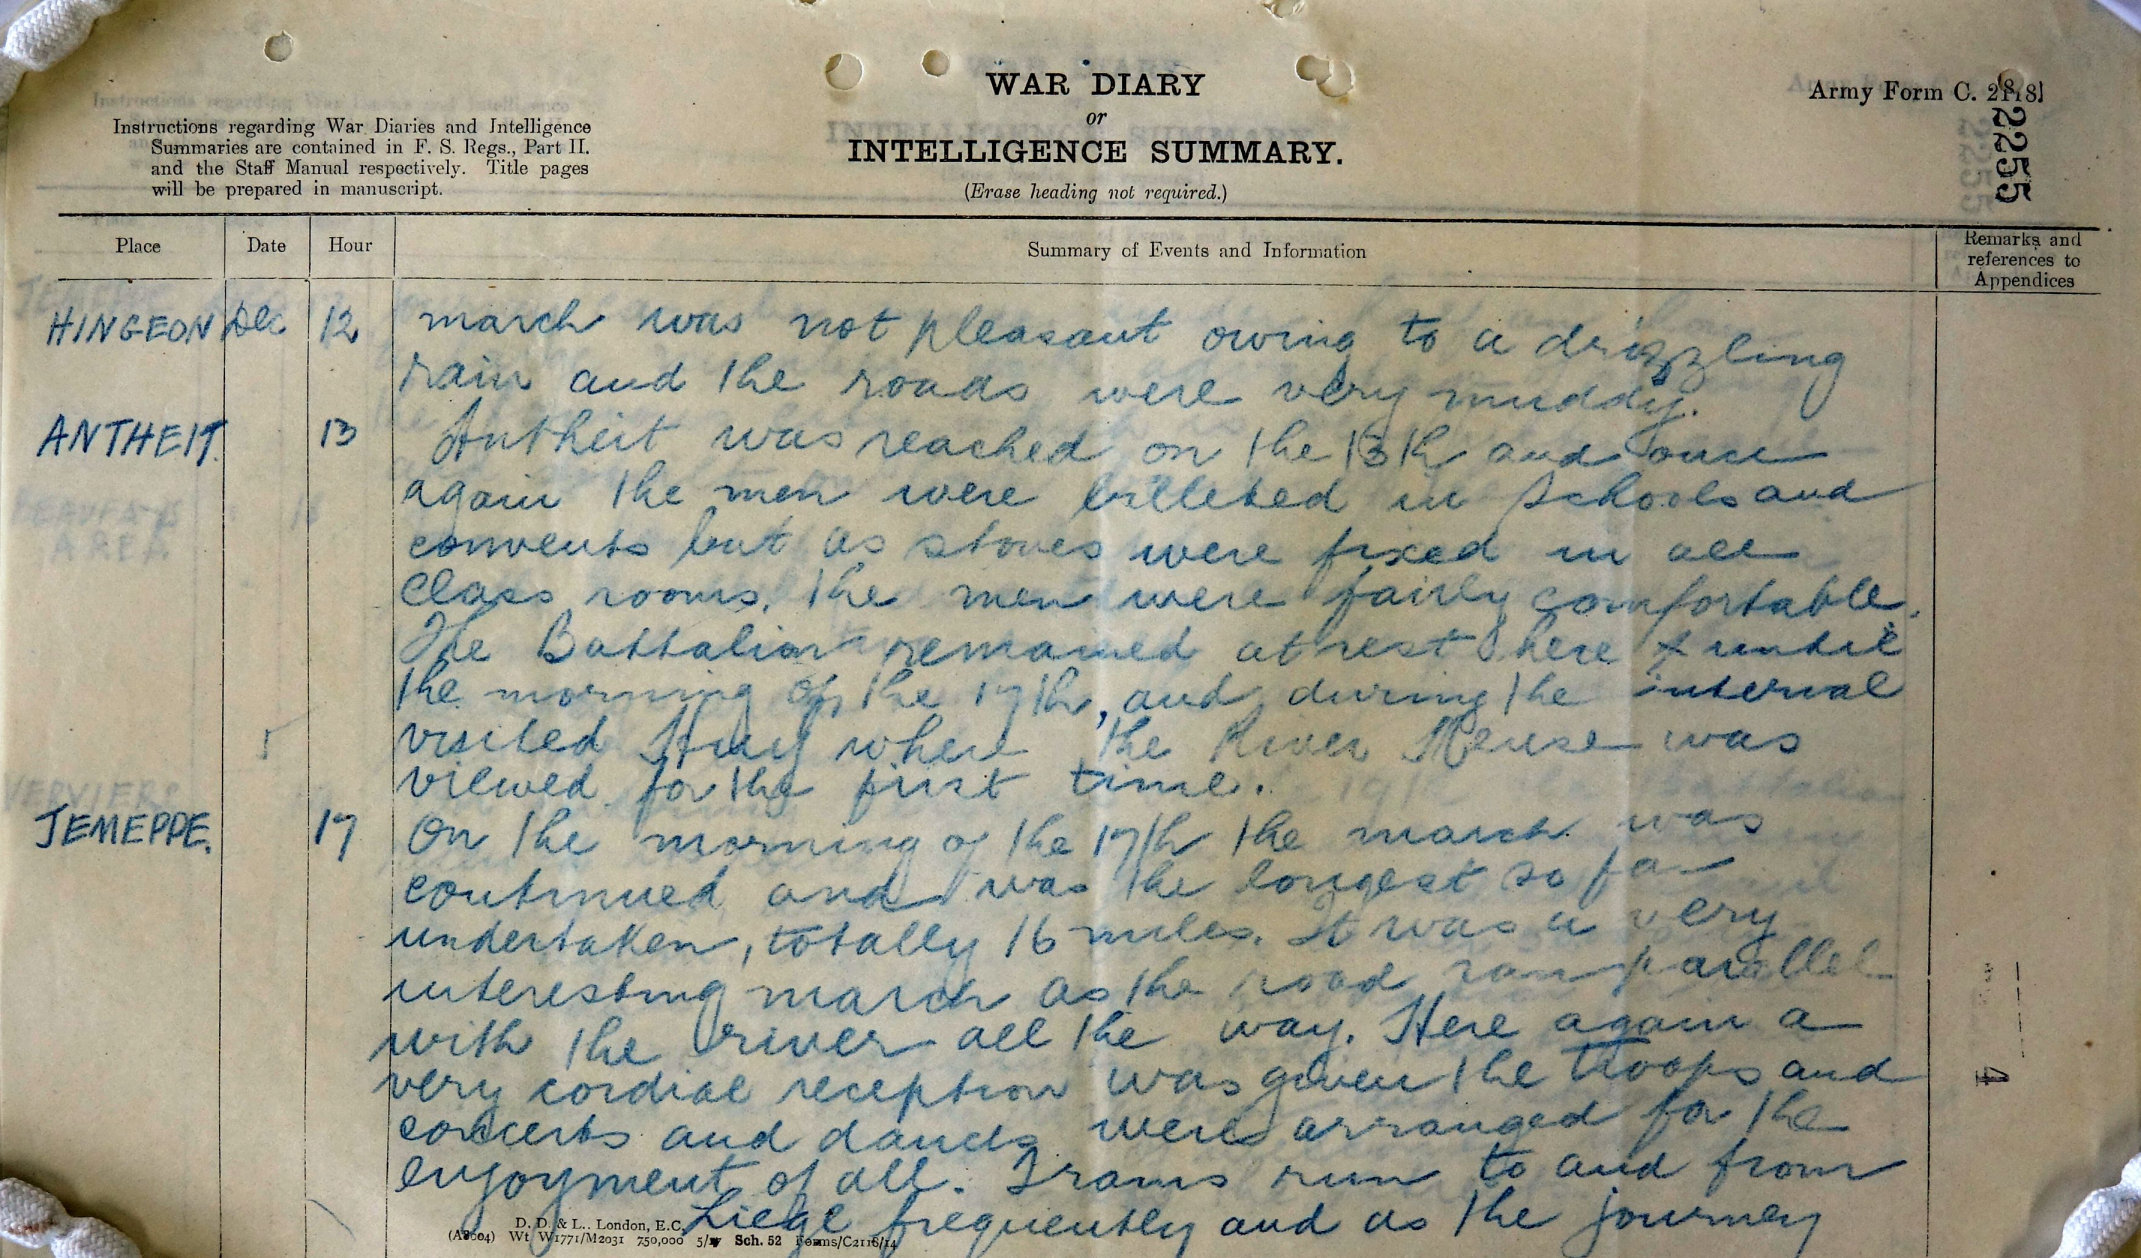 WAR DIARY
or
INTELLIGENCE SUMMARY.
(Erase heading not required.)
Army Form C. 2118.
2255
Instructions regarding War Diaries and Intelligence
Summaries are contained in F. S. Regs., Part II.
and the Staff Manual respectively. Title pages
will be prepared in manuscript.
Place Date Hour Summary of Events and Information Remarks and
references to
Appendices
HINGEON Dec 12 march was not pleasant owing to a drizzling
rain and the roads were very muddy.
ANTHEIT. 13 Antheit was reached on the 13th and once
again the men were billeted in schools and
convents but as stoves were fixed in all
class rooms, the men were fairly comfortable.
The Battalion remained at rest here until
the morning of the 17th, and during the interval
visited Huy where the River Meuse was
viewed for the first time.
JEMEPPE. 17 On the morning of the 17th the march was
continued and was the longest so far
undertaken, totally 16 miles. It was a very
interesting march as the road ran parallel
with the river all the way. Here again a
very cordial reception was given the troops and
concerts and dances were arranged for the
enjoyment of all. Trams run to and from
Liege frequently and as the journey
D. D. & L., London, E.C.
(A8604) Wt W1771/M2031 750,000 5/17 Sch. 52 Forms/C2118/14